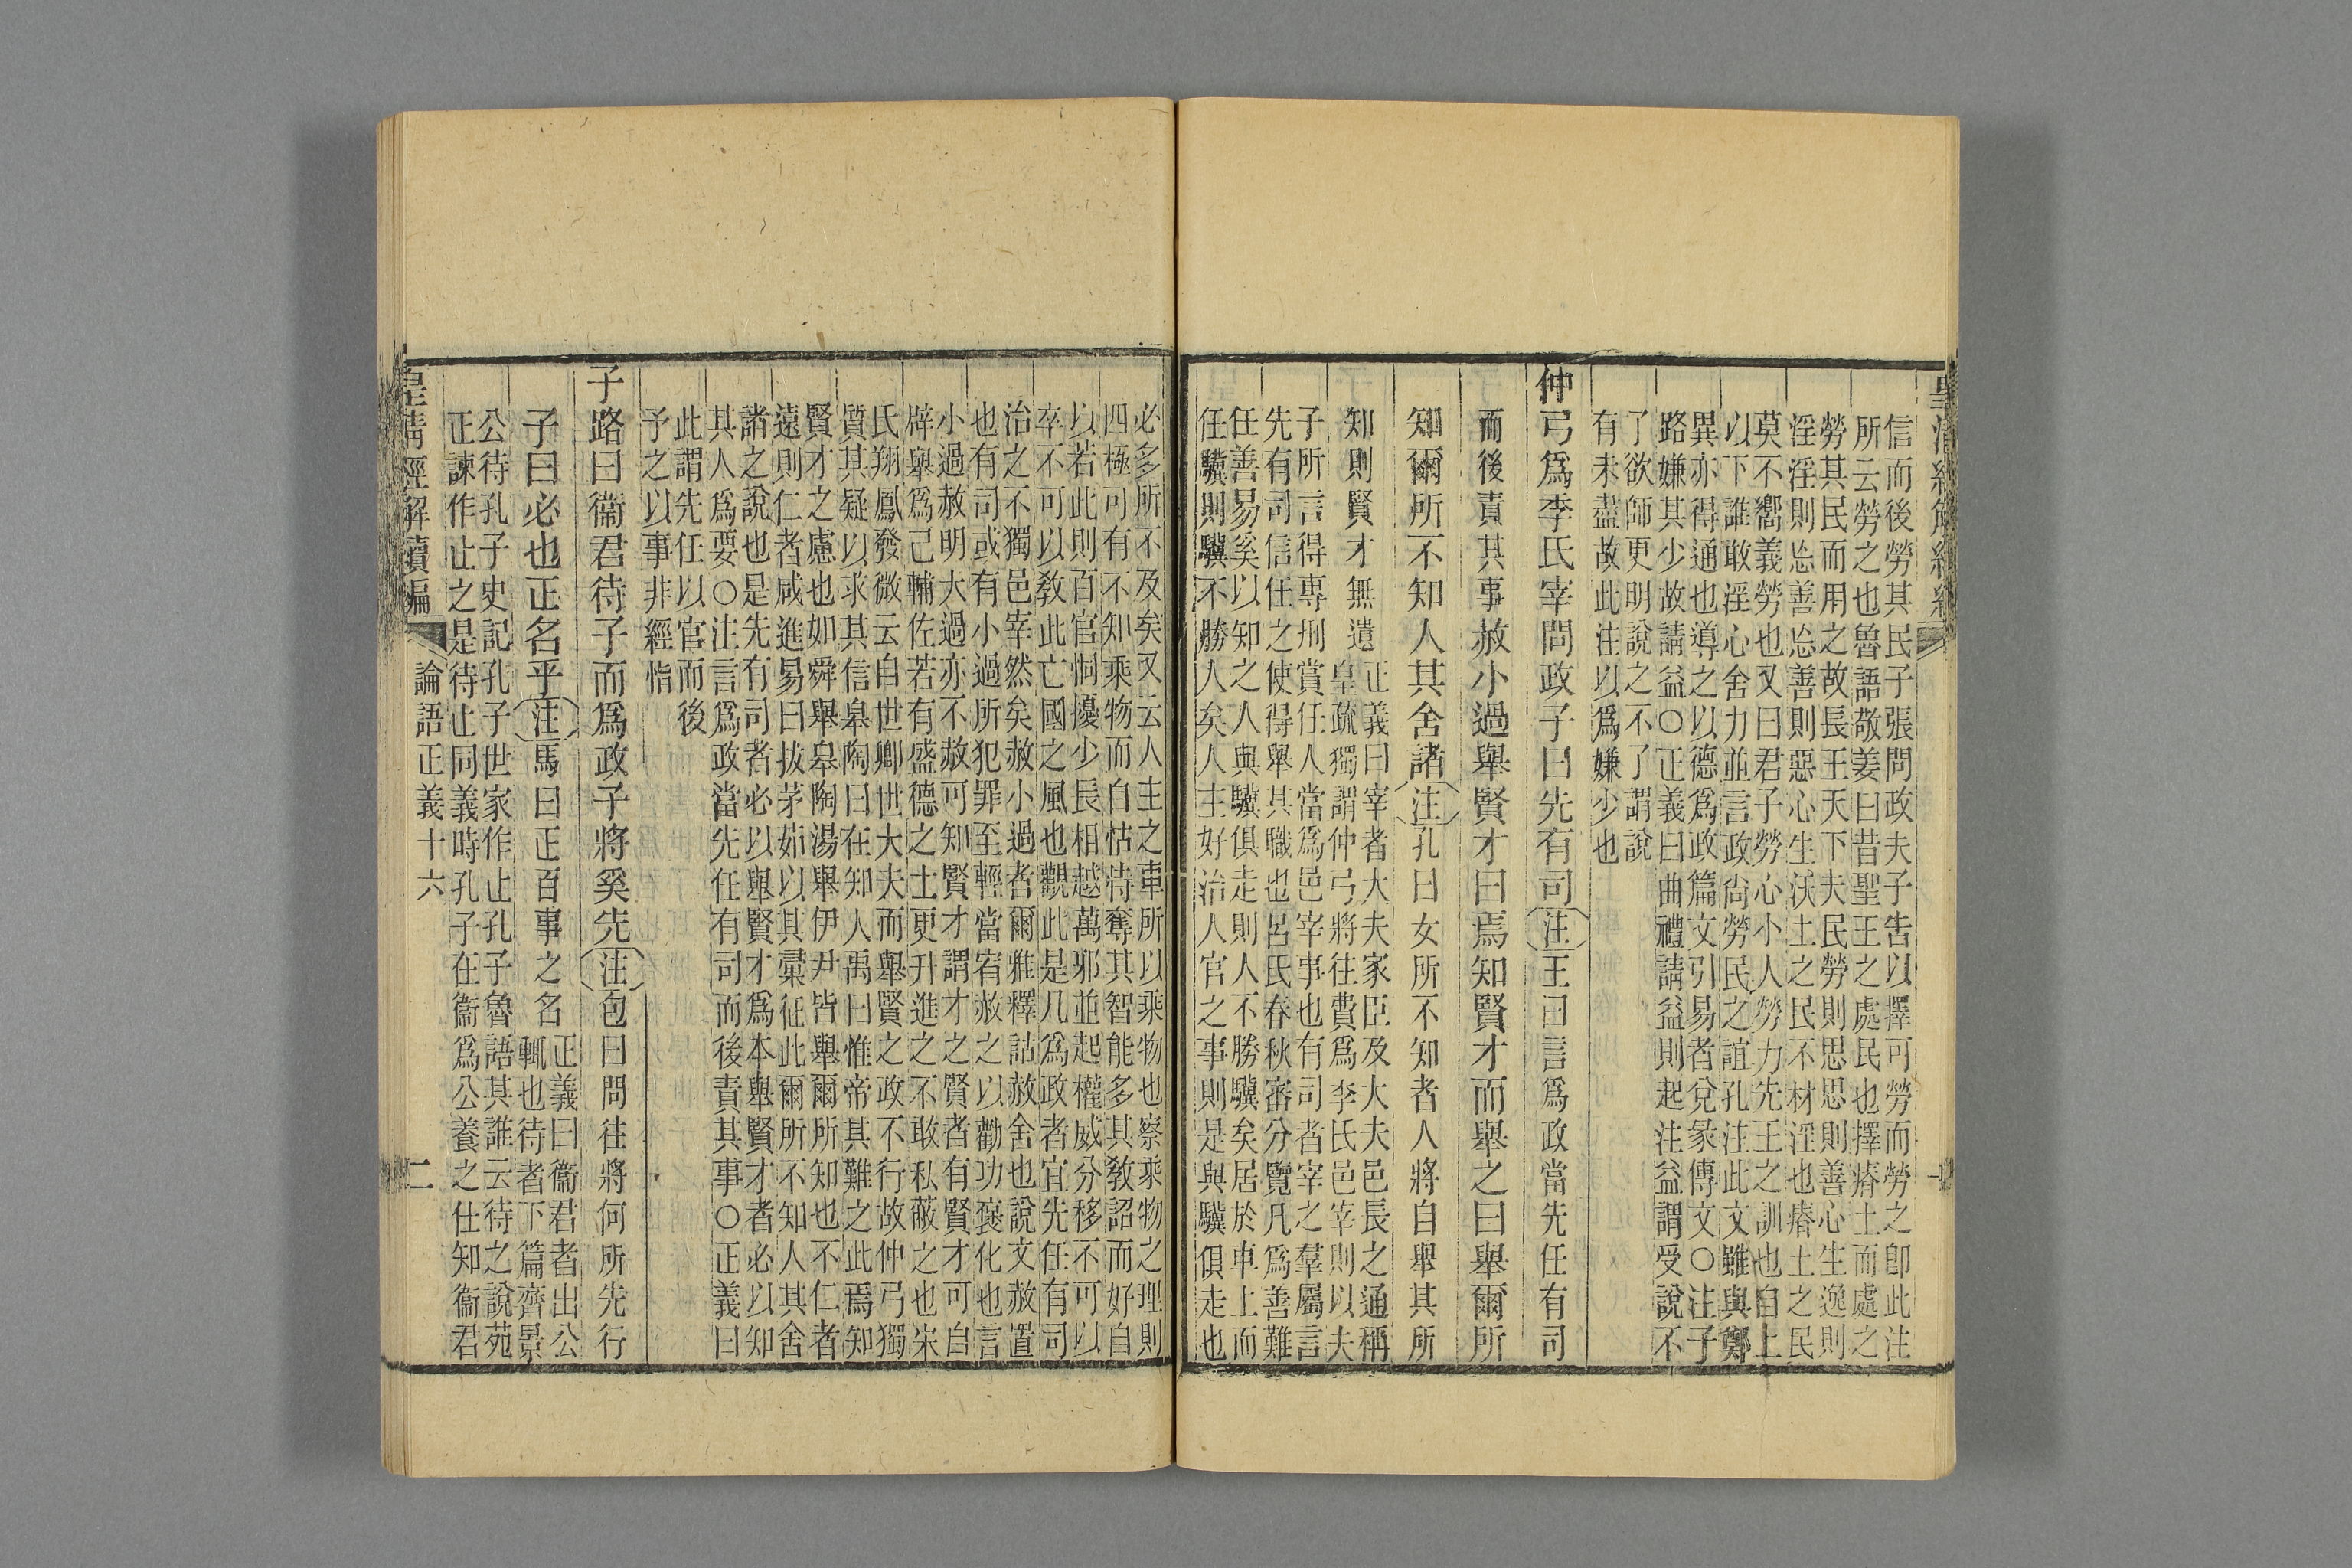 皇清經解續編
信而後勞其民子張問政夫子告以擇可勞而勞之卽此注
所云勞之也魯語敬姜曰昔聖王之處民也擇瘠土而處之
勞其民而用之故長王天下夫民勞則思思則善心生逸則
淫淫則忘善忘善則惡心生沃土之民不材淫也瘠土之民
莫不嚮義勞也又曰君子勞心小人勞力先王之訓也自上
以下誰敢淫心舍力並言政尙勞民之誼孔注此文雖與鄭
異亦得通也導之以德爲政篇文引易者兌彖傳文○注子
路嫌其少故請益○正義曰曲禮請益則起注益謂受說不
了欲師更明說之不了謂說
有未盡故此注以爲嫌少也
仲弓爲季氏宰問政子曰先有司注王曰言爲政當先任有司
而後責其事赦小過舉賢才曰焉知賢才而舉之曰舉爾所
知爾所不知人其舍諸注孔曰女所不知者人將自舉其所
知則賢才無遺
正義曰宰者大夫家臣及大夫邑長之通稱
皇疏獨謂仲弓將往費爲季氏邑宰則以夫
子所言得專刑賞任人當爲邑宰事也有司者宰之羣屬言
先有司信任之使得舉其職也呂氏春秋審分覽凡爲善難
任善易奚以知之人與驥俱走則人不勝驥矣居於車上而
任驥則驥不勝人矣人主好治人官之事則是與驥俱走也
必多所不及矣又云人主之車所以乘物也察乘物之理則
四極可有不知乘物而自怙恃奪其智能多其敎詔而好自
以若此則百官恫擾少長相越萬邪並起權威分移不可以
卒不可以敎此亡國之風也觀此是凡爲政者宜先任有司
治之不獨邑宰然矣赦小過者爾雅釋詁赦舍也說文赦置
也有司或有小過所犯罪至輕當宥赦之以勸功襃化也言
小過赦明大過亦不赦可知賢才謂才之賢者有賢才可自
辟舉爲己輔佐若有盛德之士更升進之不敢私蔽之也宋
氏翔鳳發微云自世卿世大夫而舉賢之政不行故仲弓獨
質其疑以求其信皋陶曰在知人禹曰惟帝其難之此焉知
賢才之慮也如舜舉皋陶湯舉伊尹皆舉爾所知也不仁者
遠則仁者咸進易曰拔茅茹以其彙征此爾所不知人其舍
諸之說也是先有司者必以舉賢才爲本舉賢才者必以知
其人爲要○注言爲政當先任有司而後責其事○正義曰
此謂先任以官而後
予之以事非經恉
子路曰衞君待子而爲政子將奚先注包曰問往將何所先行
子曰必也正名乎注馬曰正百事之名
正義曰衞君者出公
輒也待者下篇齊景
公待孔子史記孔子世家作止孔子魯語其誰云待之說苑
正諫作止之是待止同義時孔子在衞爲公養之仕知衞君
皇淸經解續編 論語正義十六 二